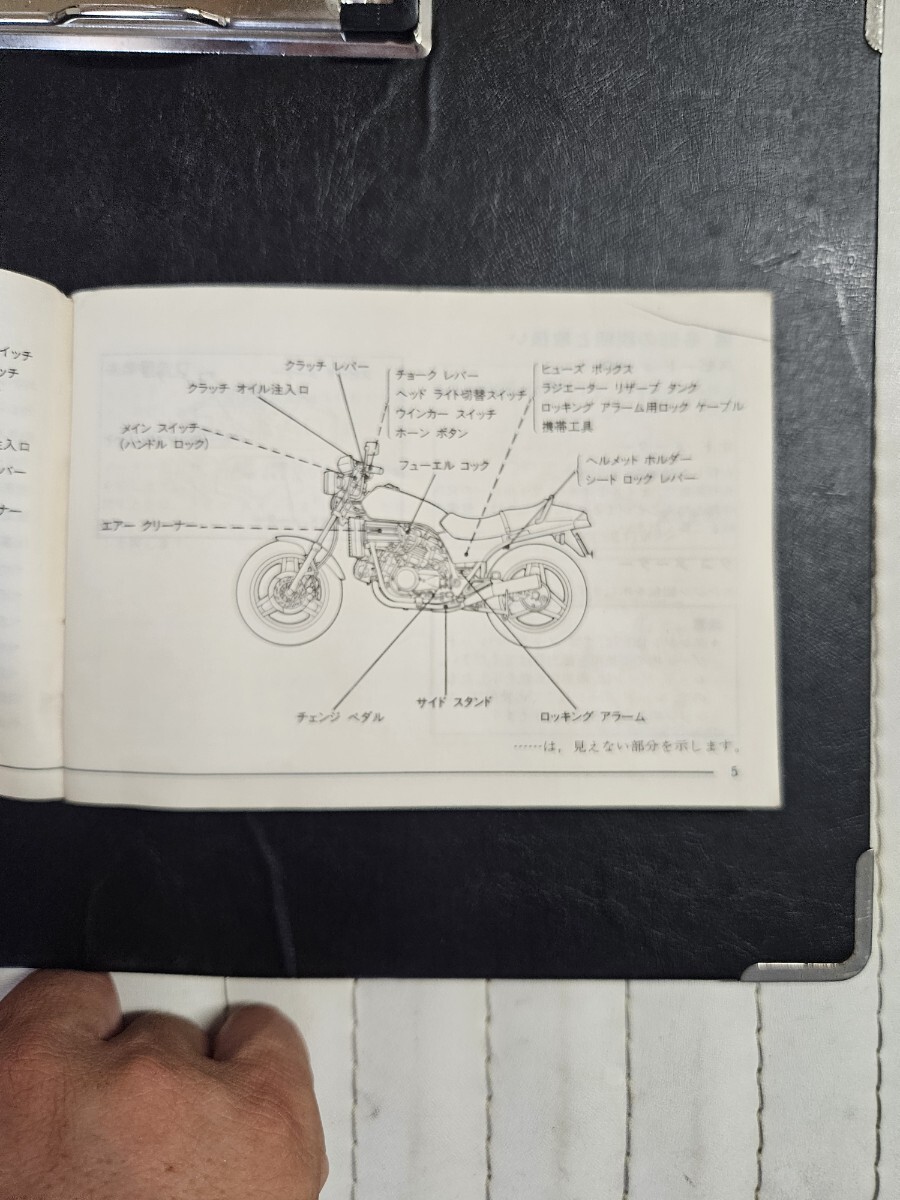 イッチ
ッチ
注入口
バー
ナー
クラッチ レバー
クラッチ オイル注入口
メイン スイッチ
(ハンドル ロック)
エアー クリーナー
チョーク レバー
ヘッド ライト切替スイッチ
ウインカー スイッチ
ホーン ボタン
フューエル コック
ヒューズ ボックス
ラジエーター リザーブ タンク
ロッキング アラーム用ロック ケーブル
携帯工具
ヘルメット ホルダー
シート ロック レバー
チェンジ ペダル
サイド スタンド
ロッキング アラーム
……は，見えない部分を示します。
5